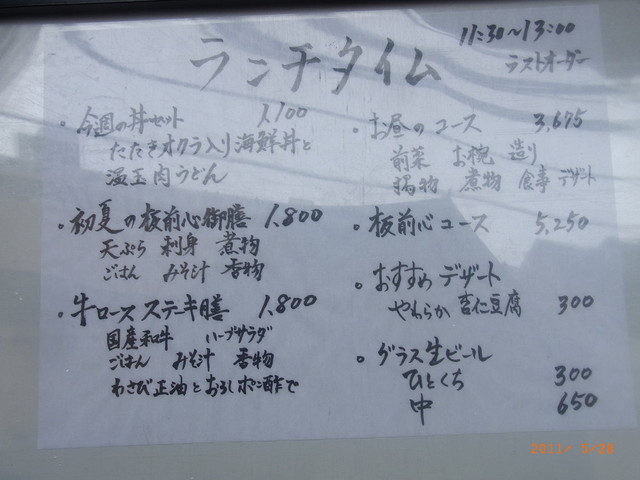 ランチタイム
11:30〜13:00
ラストオーダー
・今週の丼セット 1,100
たたきオクラ入り海鮮丼と
温玉肉うどん
・初夏の板前心御膳 1,800
天ぷら 刺身 煮物
ごはん みそ汁 香物
・牛ロースステーキ膳 1,800
国産和牛 ハーブサラダ
ごはん みそ汁 香物
わさび正油とおろしポン酢で
・お昼のコース 3,675
前菜 お椀 造り
鍋物 煮物 食事 デザート
・板前心コース 5,250
・おすすめデザート
やわらか杏仁豆腐 300
・グラス生ビール
ひとくち 300
中 650
2011/ 5/28